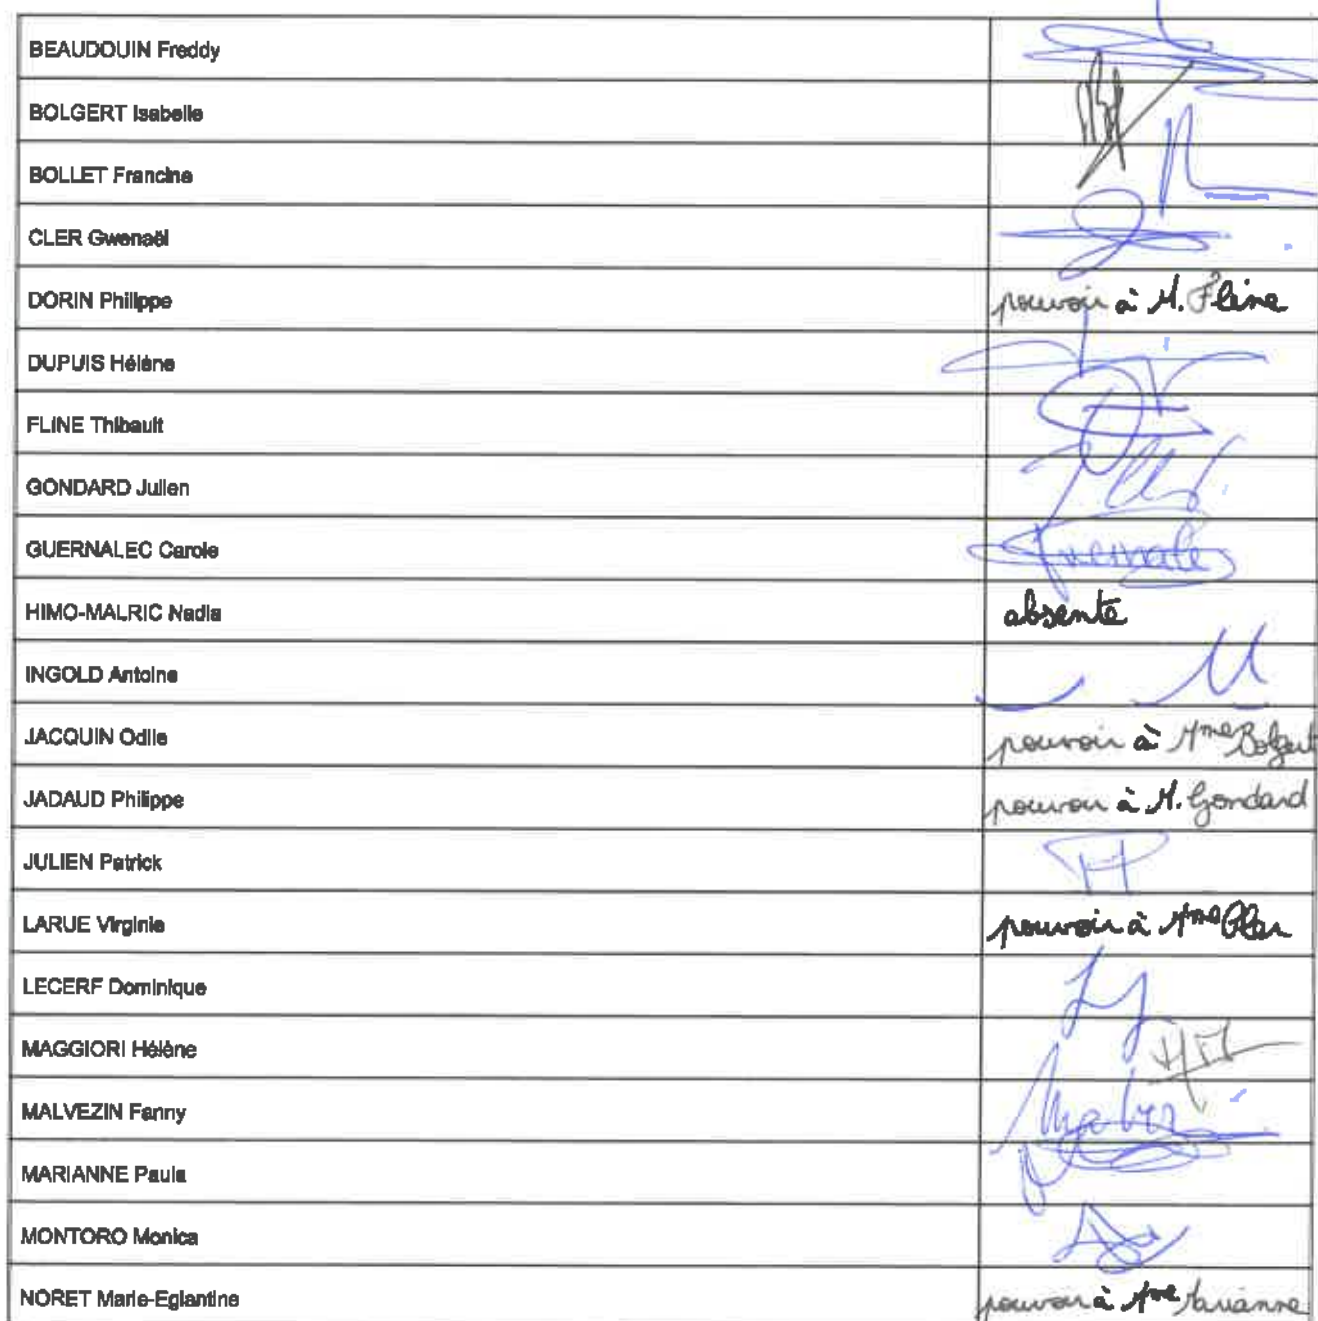 BEAUDOUIN Freddy
BOLGERT Isabelle
BOLLET Francine
CLER Gwenaël
DORIN Philippe pouvoir à M. Fline
DUPUIS Hélène
FLINE Thibault
GONDARD Julien
GUERNALEC Carole
HIMO-MALRIC Nadia absente
INGOLD Antoine
JACQUIN Odile pouvoir à Mme Bolgert
JADAUD Philippe pouvoir à M. Gondard
JULIEN Patrick
LARUE Virginie pouvoir à Mme Cler
LECERF Dominique
MAGGIORI Hélène
MALVEZIN Fanny
MARIANNE Paula
MONTORO Monica
NORET Marie-Eglantine pouvoir à Mme Marianne